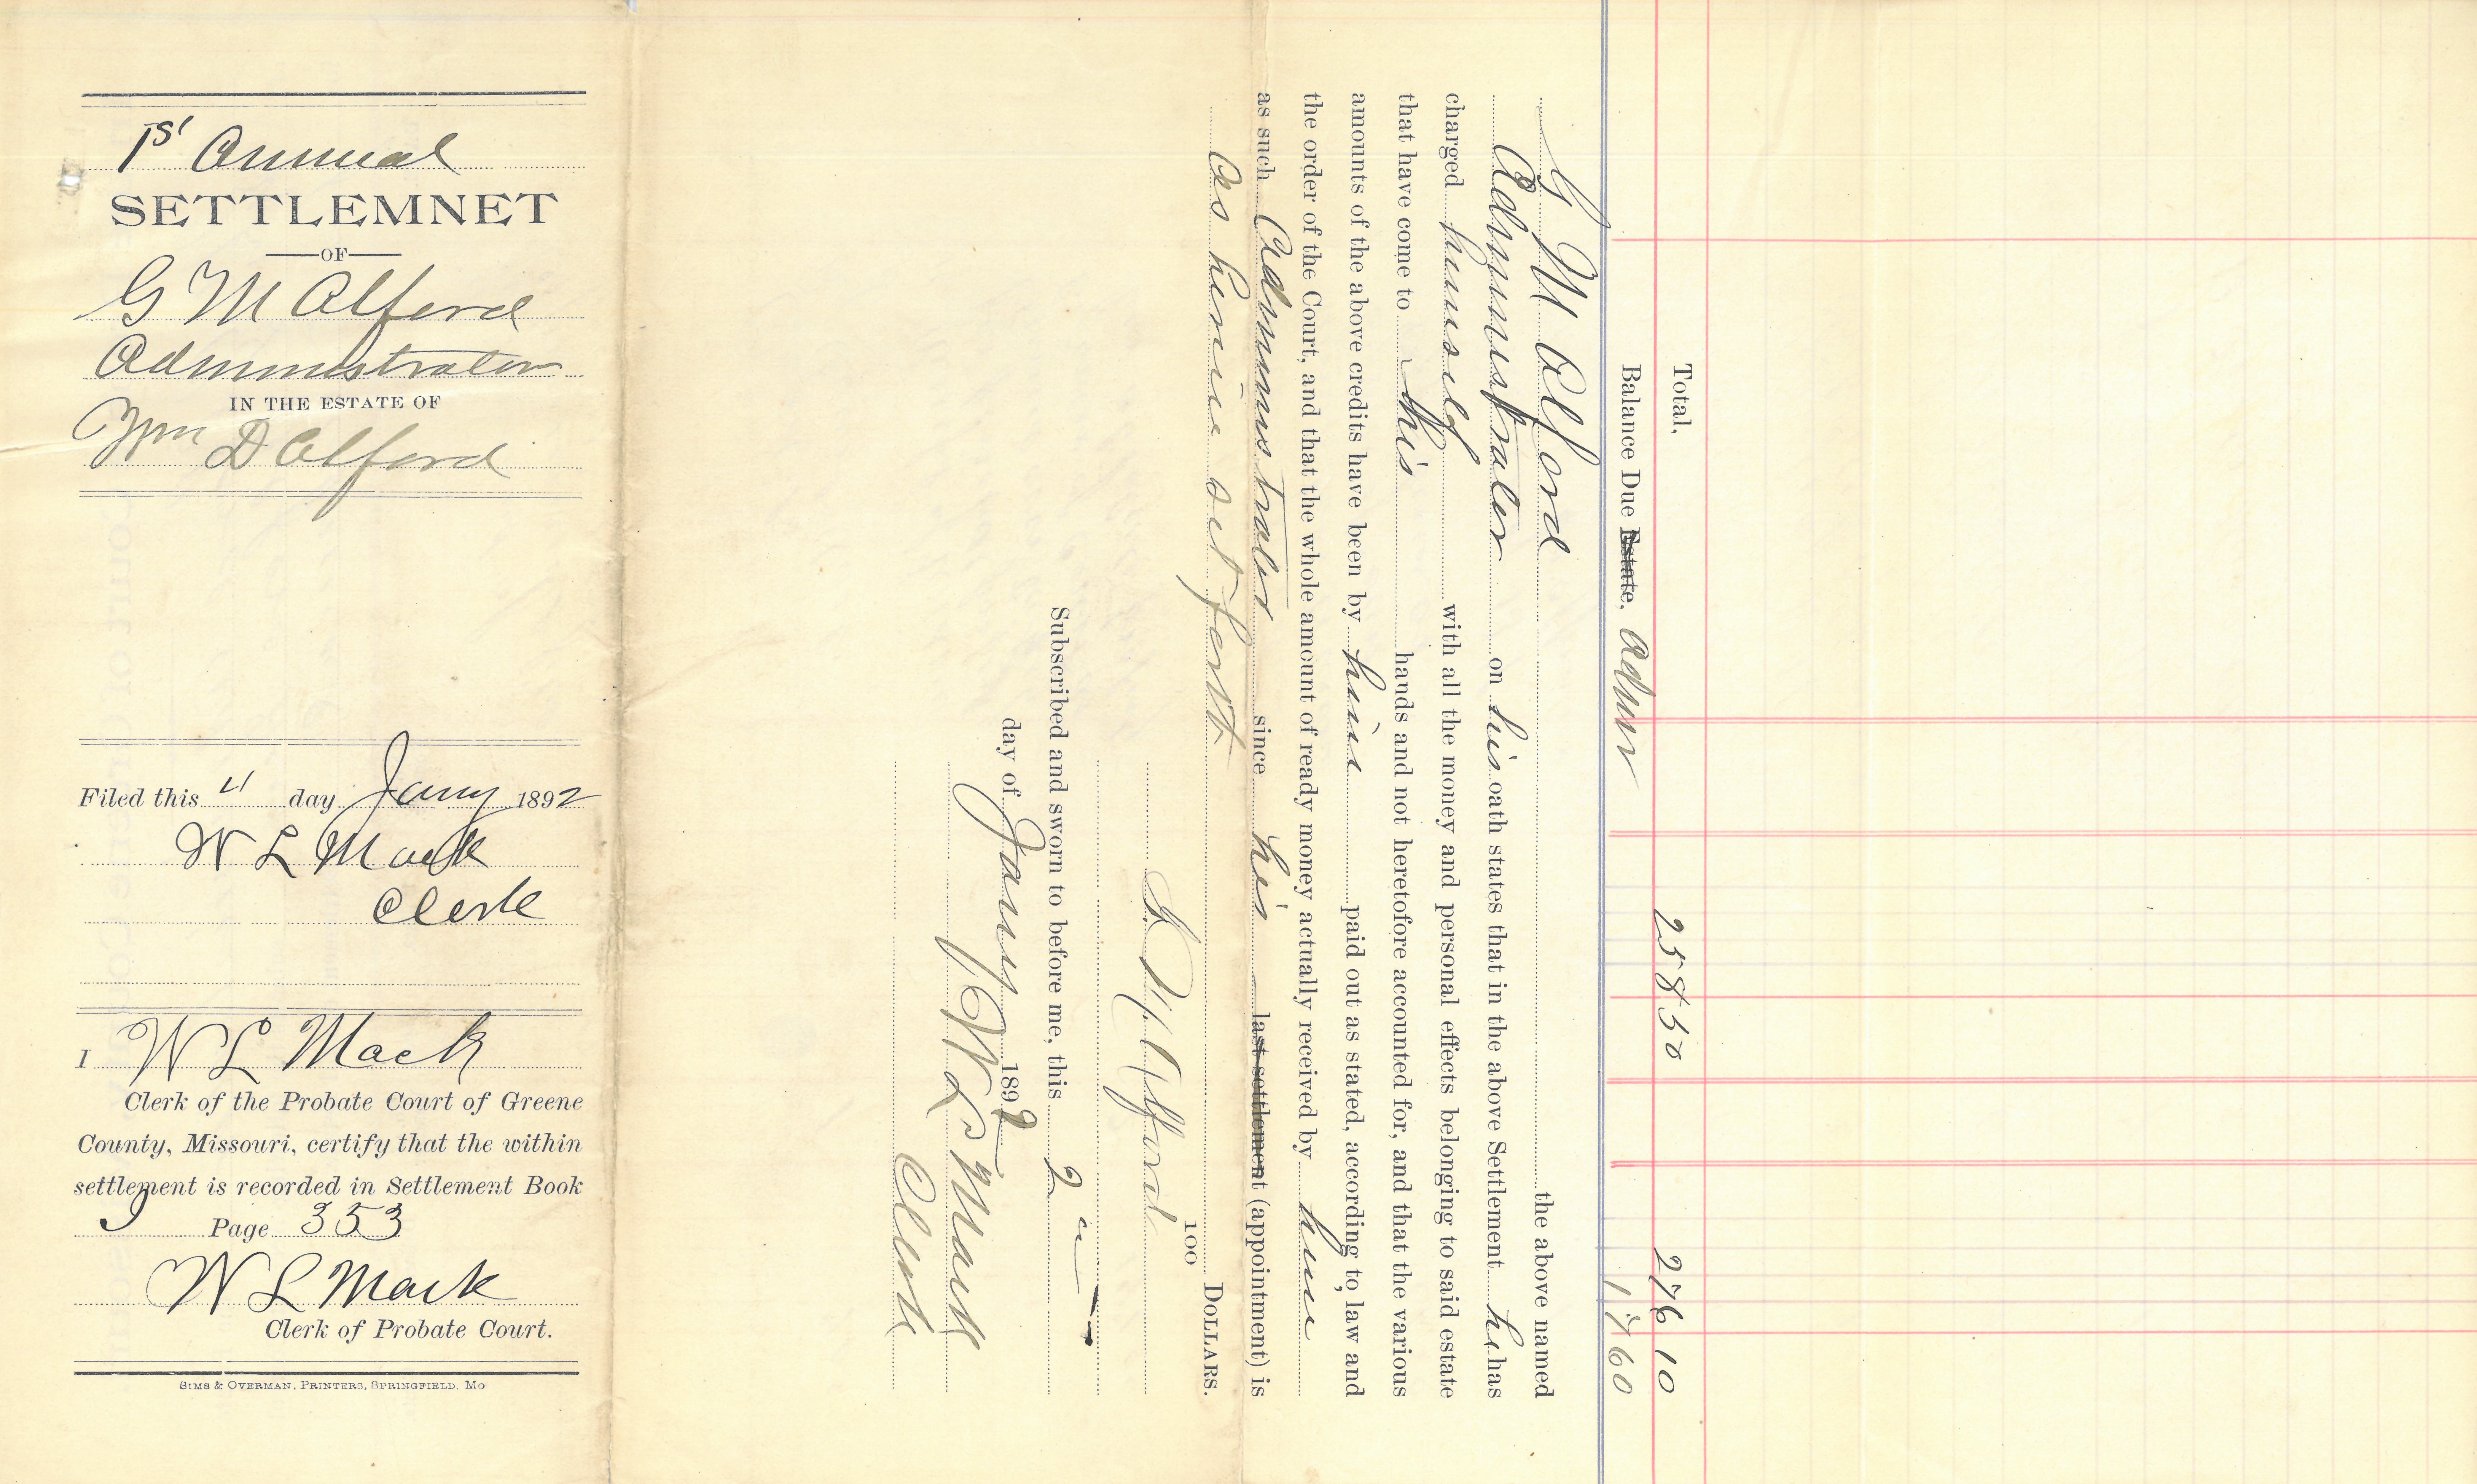 1st Annual
SETTLEMNET
OF
G M Alford
Administrator
IN THE ESTATE OF
Wm D Alford
Filed this 4 day Jany 1892
W L Mack
Clerk
I W L Mack
Clerk of the Probate Court of Greene
County, Missouri, certify that the within
settlement is recorded in Settlement Book
J Page 353
W L Mack
Clerk of Probate Court.
SIMS & OVERMAN, PRINTERS, SPRINGFIELD, MO
Total, 258 50 276 10
Balance Due Estate, Admr 17 60
G M Alford the above named
Administrator on his oath states that in the above Settlement he has
charged himself with all the money and personal effects belonging to said estate
that have come to his hands and not heretofore accounted for, and that the various
amounts of the above credits have been by him paid out as stated, according to law and
the order of the Court, and that the whole amount of ready money actually received by him
as such Administrator since his last settlement (appointment) is
as herein set forth DOLLARS.
100
G. M. Alford
Subscribed and sworn to before me, this 2
day of Jany 1892
W L Mack
Clerk